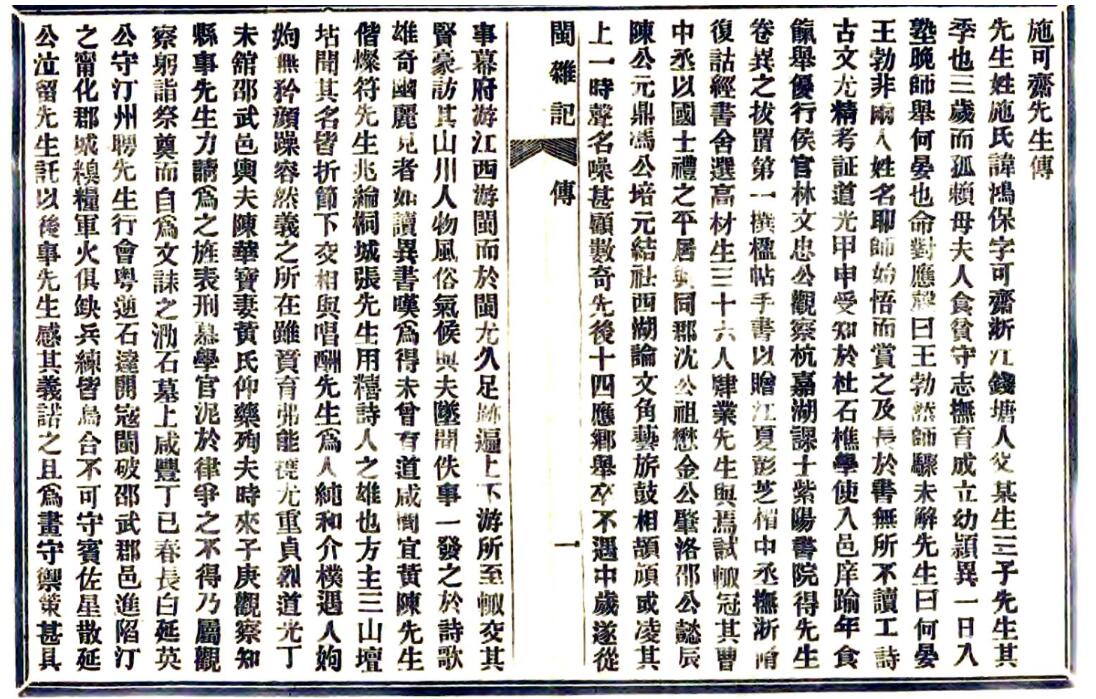 施可齋先生傳
先生姓施氏諱鴻保字可齋浙江錢塘人父某生三子先生其
季也三歲而孤賴母夫人食貧守志撫育成立幼穎異一日入
塾晚師舉何晏也命對應聲曰王勃然師驟未解先生曰何晏
王勃非兩人姓名聊師始悟而賞之及長於書無所不讀工詩
古文尤精考証道光甲申受知於杜石樵學使入邑庠踰年食
餼舉優行侯官林文忠公觀察杭嘉湖課士紫陽書院得先生
卷異之拔置第一撰楹帖手書以贈江夏彭芝楣中丞撫浙時
復詁經書舍選高材生三十六人肄業先生與焉試輒冠其曹
中丞以國士禮之平居與同郡沈公祖懋金公肇洛邵公懿辰
陳公元鼎馮公培元結社西湖論文角藝旂鼓相頡頏或凌其
上一時聲名噪甚顧數奇先後十四應鄉舉卒不遇中歲遂從
閩雜記 傳 一
事幕府游江西游閩而於閩尤久足跡遍上下游所至輒交其
賢豪訪其山川人物風俗氣候與夫墜聞佚事一發之於詩歌
雄奇幽麗見者如讀異書嘆為得未曾有道咸間宜黃陳先生
偕燦符先生兆綸桐城張先生用禧詩人之雄也方主三山壇
坫聞其名皆折節下交相與唱酬先生為人純和介樸遇人姁
姁無矜顏躁容然義之所在雖賁育弗能奪尤重貞烈道光丁
未舘邵武邑輿夫陳華寶妻黃氏仰藥殉夫時來子庚觀察知
縣事先生力請為之旌表刑慕學官泥於律爭之不得乃屬觀
察躬詣祭奠而自為文誄之泐石墓上咸豐丁巳春長白延英
公守汀州聘先生行會粵逆石達開寇閩破邵武郡邑進陷汀
之甯化郡城糗糧軍火俱缺兵練皆烏合不可守賓佐星散延
公泣留先生託以後事先生感其義諾之且為畫守禦策甚具